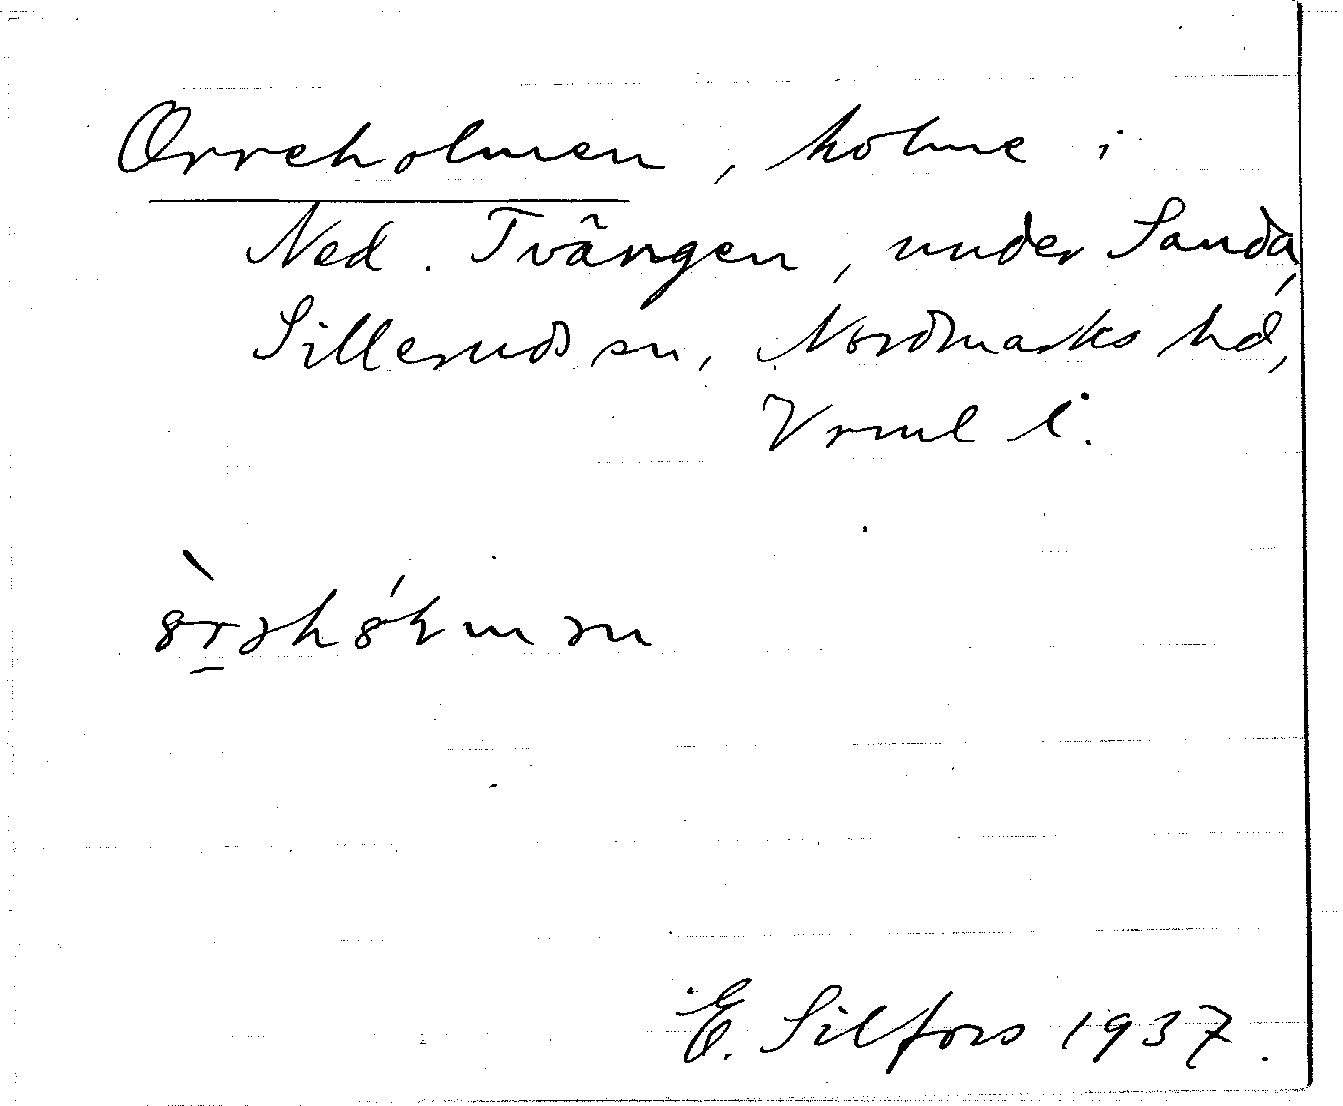 Orreholmen, holme i
Ned. Tvängen, under Sanda,
Silleruds sn, Nordmarks hd,
Vrml l.
E. Silfors 1937.